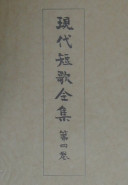 現代短歌全集 第四巻